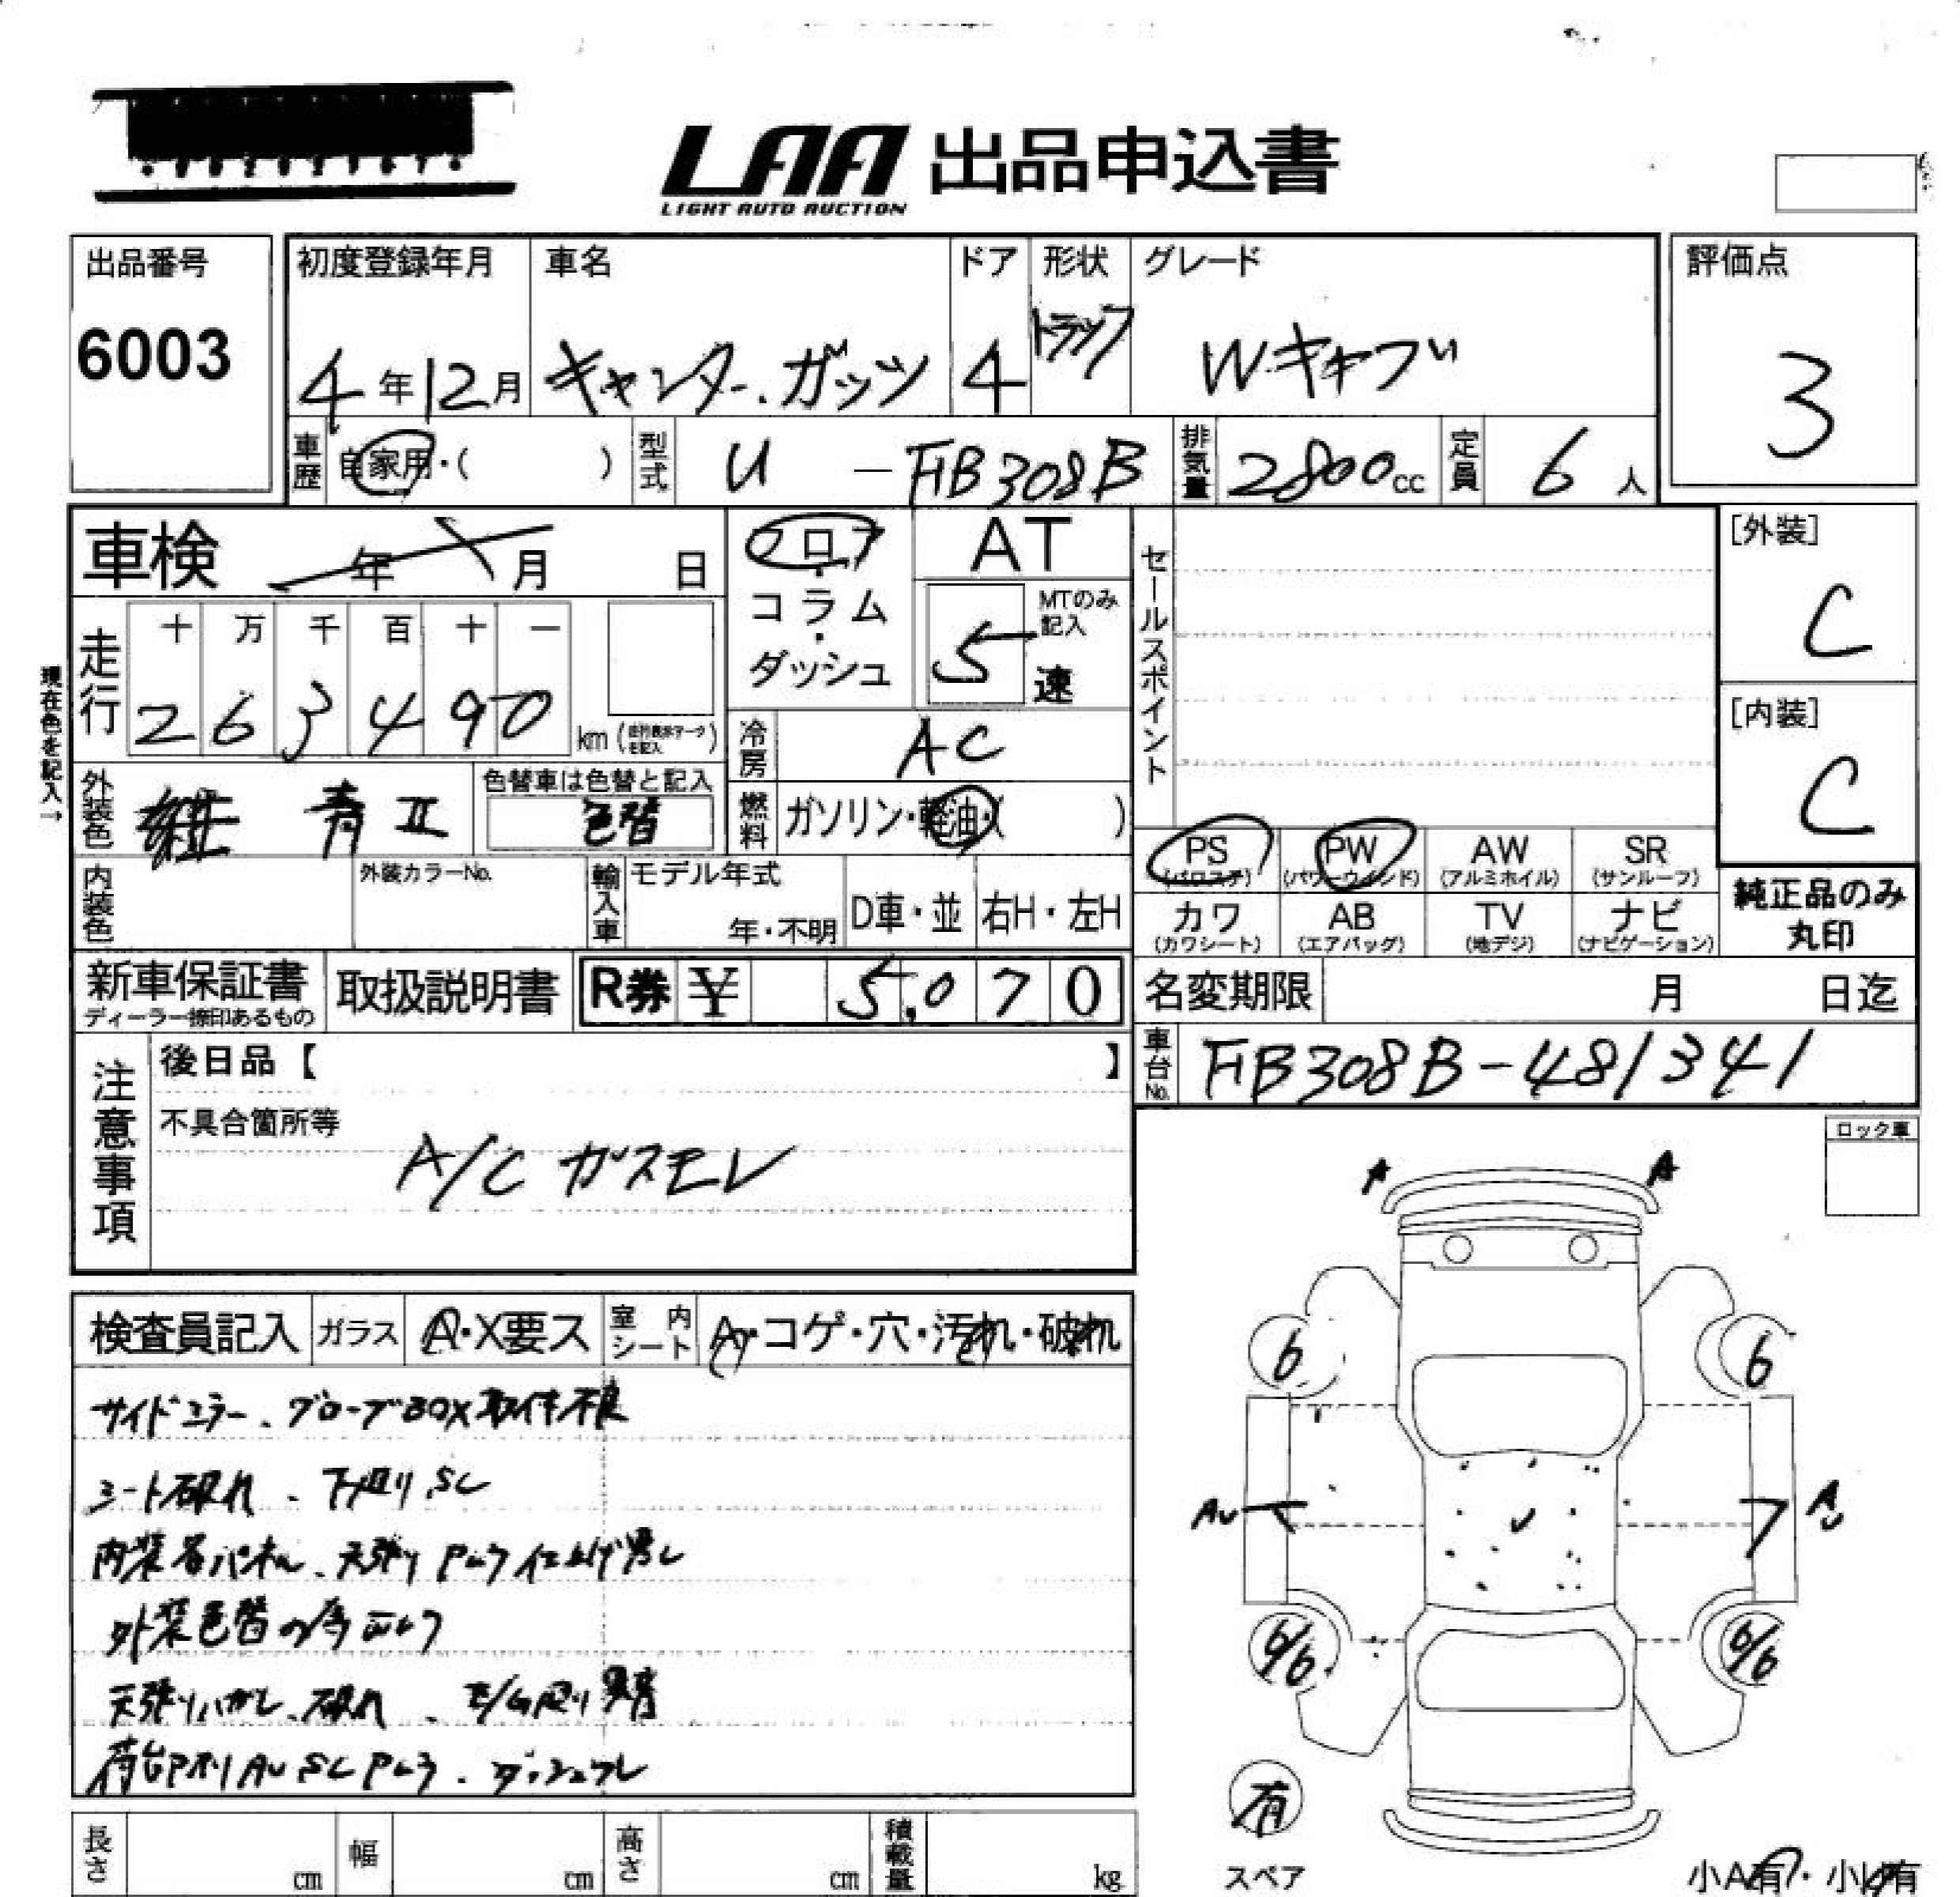 LAA 出品申込書
LIGHT AUTO AUCTION
出品番号
6003
初度登録年月 車名 ドア 形状 グレード
4年12月 キャンター.ガッツ 4 トラック Wキャブ
評価点
3
車歴 自家用・( ) 型式 U - FB308B 排気量 2800cc 定員 6人
車検 年 月 日
フロア・コラム・ダッシュ
AT
5速 MTのみ記入
セールスポイント
[外装]
C
[内装]
C
現在色を記入→
走行 十 万 千 百 十 一
2 6 3 4 9 0 km
冷房 AC
外装色 紺 青II 色替車は色替と記入
色替
燃料 ガソリン・軽油・( )
PS AW SR
PW
(パワステ) (パワーウインド) (アルミホイル) (サンルーフ)
カワ AB TV ナビ
(カワシート) (エアバッグ) (地デジ) (ナビゲーション)
純正品のみ
丸印
内装色 外装カラーNo. 輸入車 モデル年式
年・不明 D車・並 右H・左H
新車保証書 取扱説明書 R券 ¥ 5,070
ディーラー捺印あるもの
名変期限 月 日迄
車台No. FB308B-481341
注意事項
後日品【 】
不具合箇所等
A/C ガスモレ
ロック車
A A
検査員記入 ガラス A・X要ス 室内シート A・コゲ・穴・汚れ・破れ
サイドミラー、グローブBOX取付不良
シート破れ、下廻りSC
内装各パネル、天張り
外装色替の為
天張りハガシ、破れ、
荷台
6 6
AU AU
6/6 6/6
有
スペア
小A有・小U有
長さ cm 幅 cm 高さ cm 積載量 kg